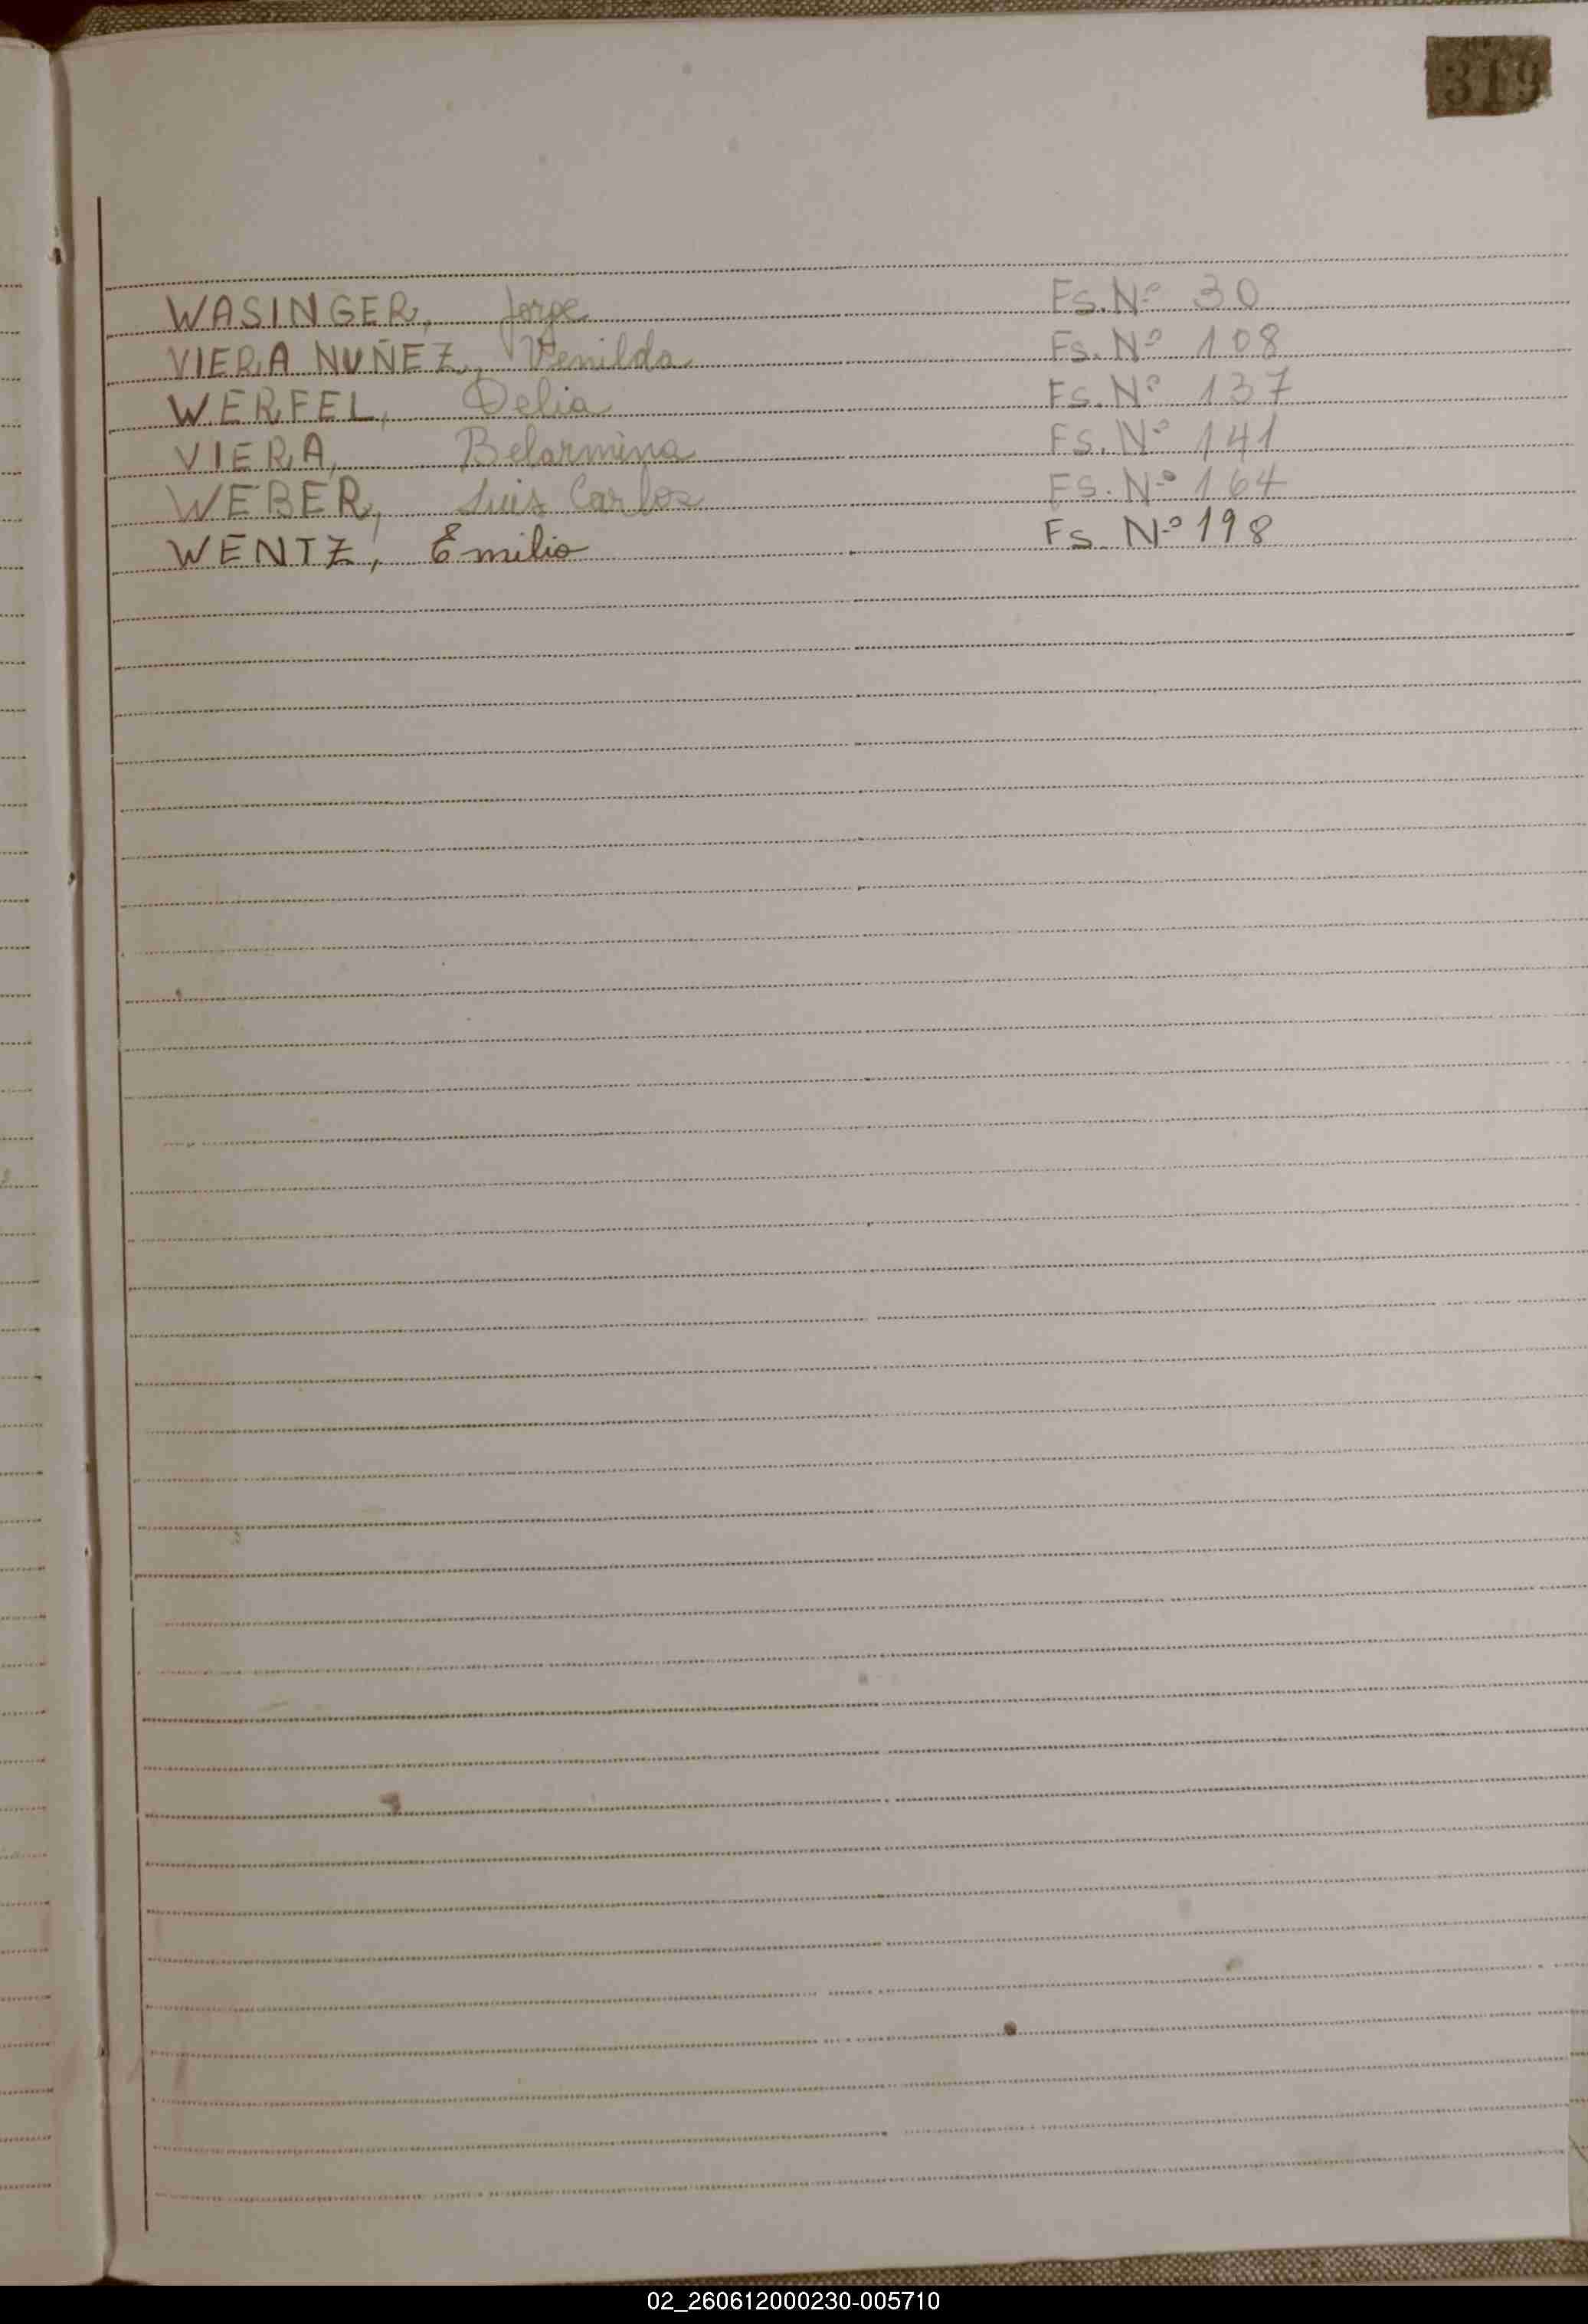 319
WASINGER, Jorge Fs. Nº 30
VIERA NUÑEZ, Venilda Fs. Nº 108
WERFEL, Delia Fs. Nº 137
VIERA, Belarmina Fs. Nº 141
WEBER, Luis Carlos Fs. Nº 164
WENTZ, Emilio Fs. Nº 198
02_260612000230-005710